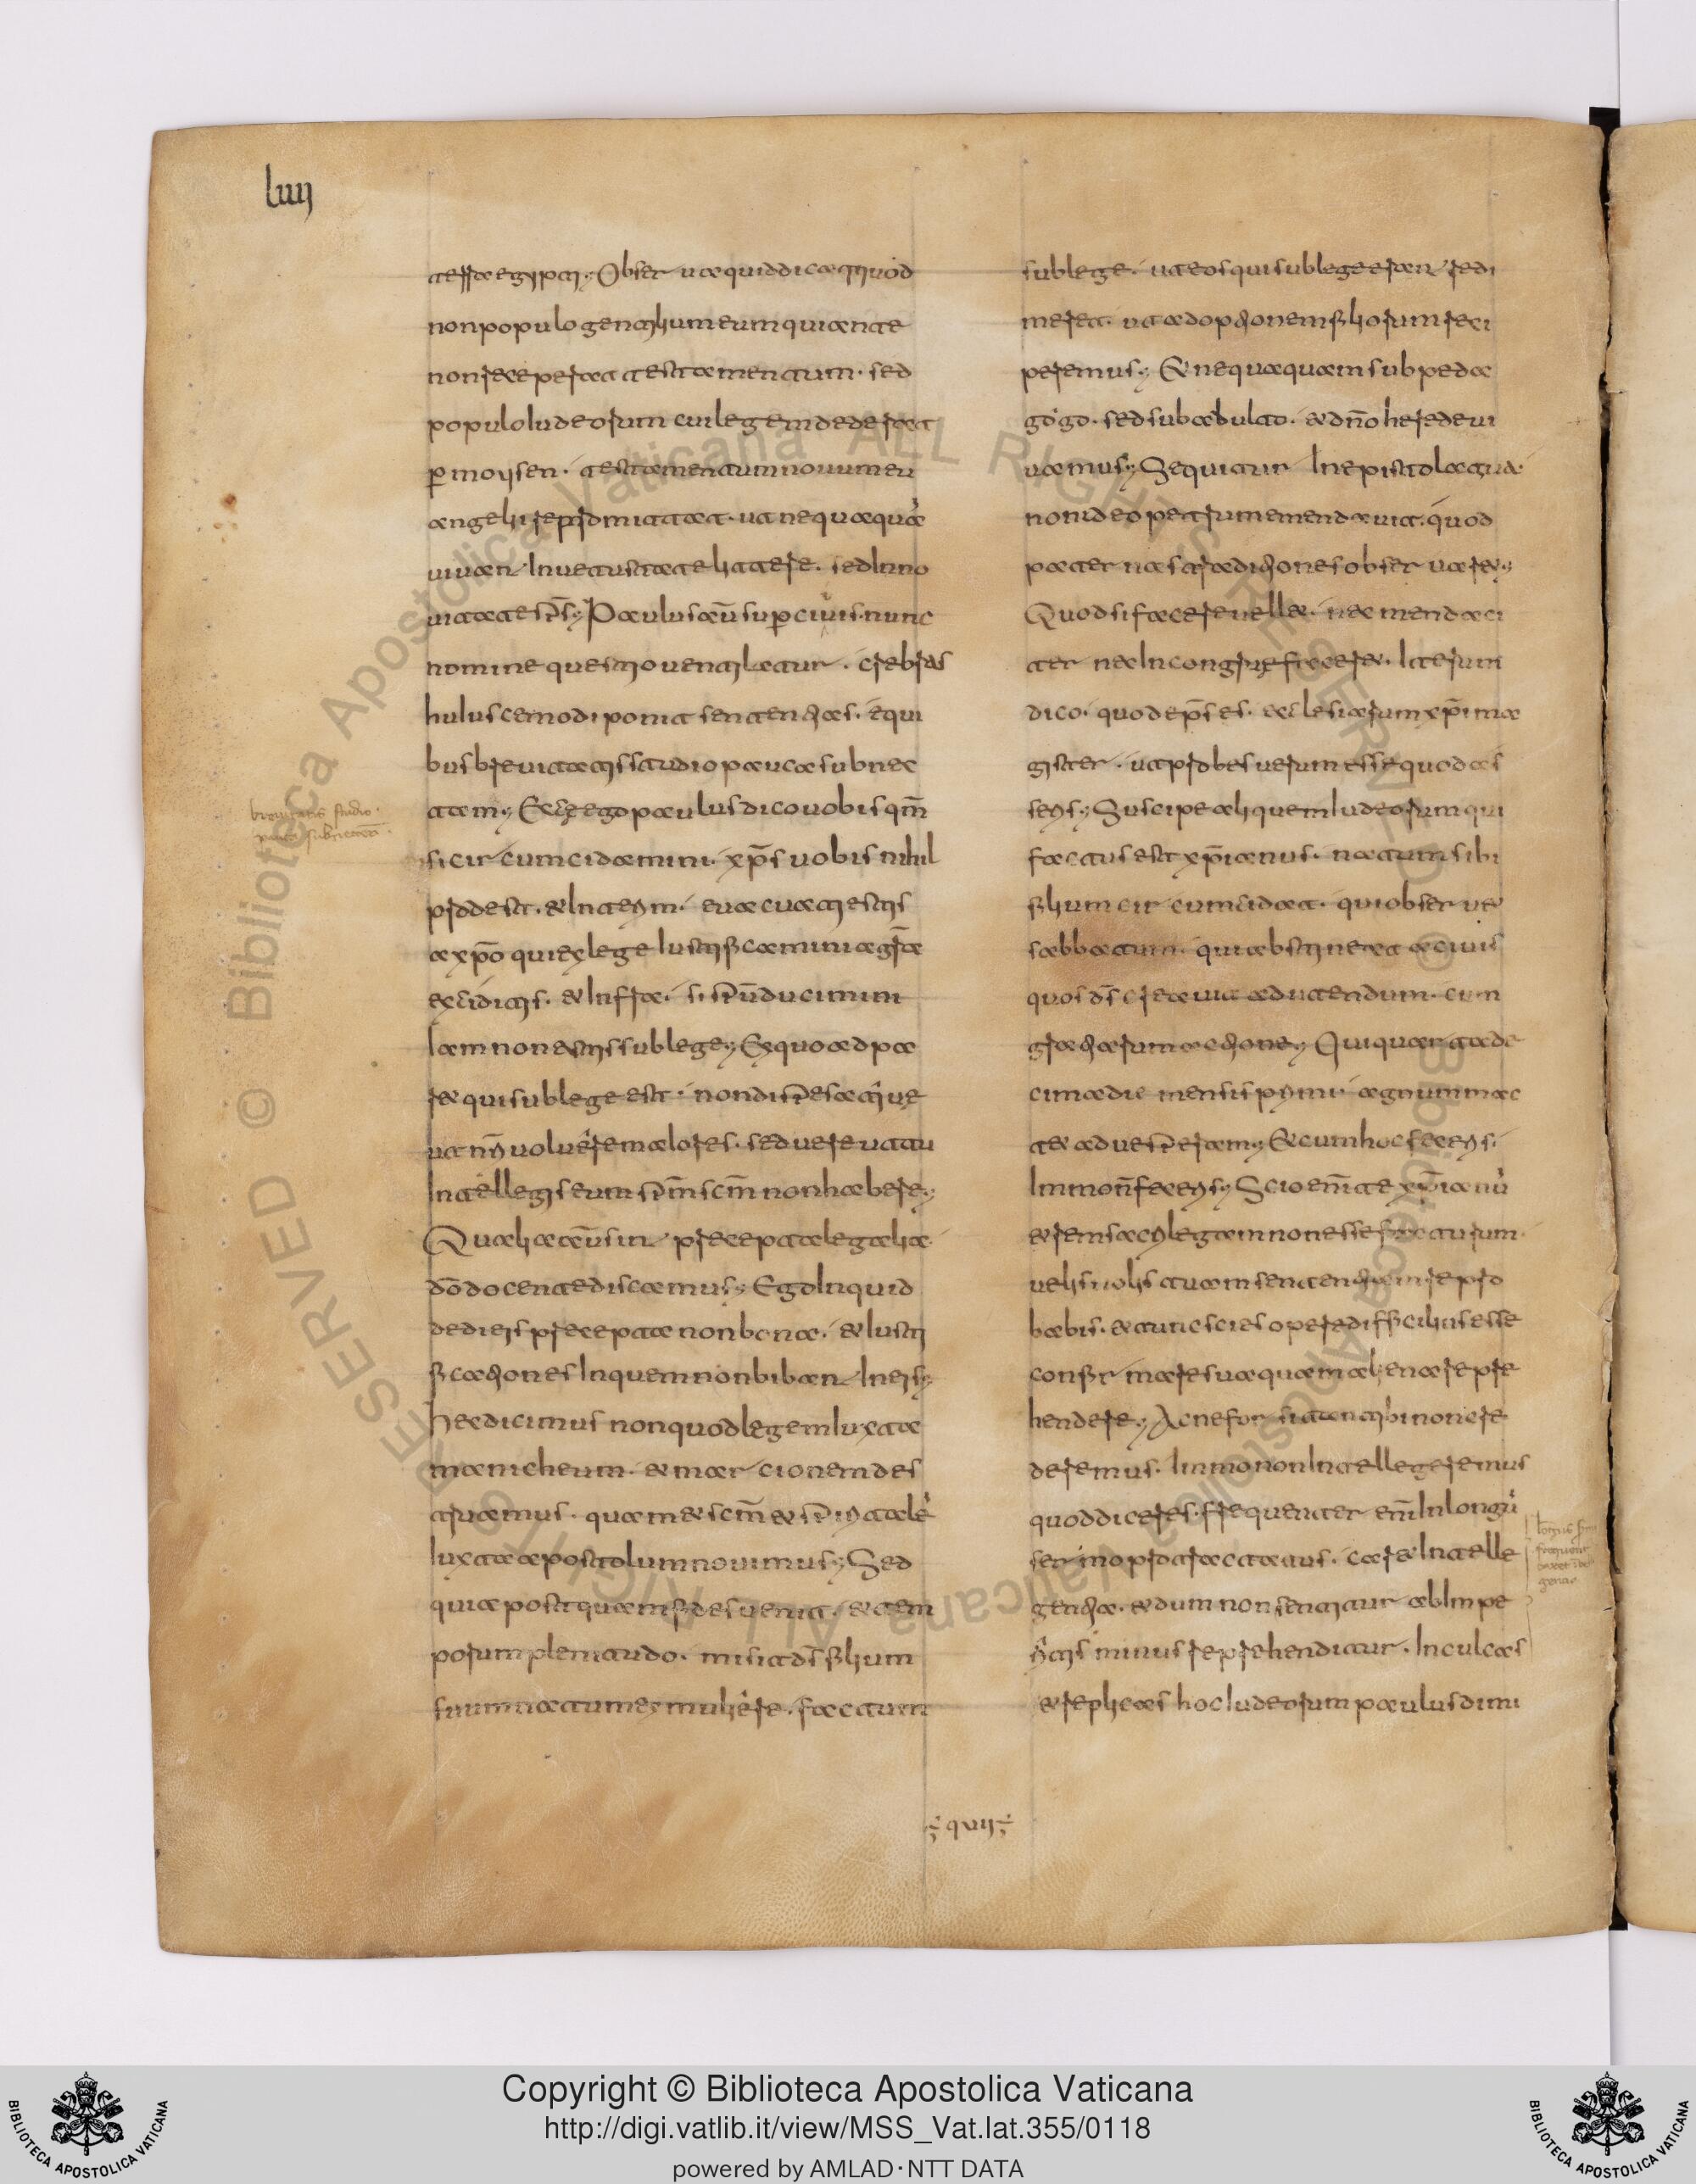 luy
terra egypti; Obserua quid dicat quod
non populo gentilium eum qui ante
non receperat testamentum. sed
populo Iudeorum cui legem dederat
p̄ moysen. testamentum nouum eu
angelii repromittat. ut nequaquā
uiuan In uetustate littere. sed In no
uitate sp̄s; Paulus aū sup̄ cuius nunc
nomine questio uentilatur. crebras
huiuscemodi ponit sententias. e qui
bus breuitatis studio pauca subnec
tam; Ecce ego paulus dico uobis qm̄
si circumcidamini. xp̄s uobis nihil
prodest. & In terim. euacuati estis
a xpō qui ex lege Iustificamini a grā
excidistis. & Infra. si sp̄u ducimini
Iam non estis sub lege; Ex quo adpa
ret qui sub lege est. non dispensatiue
ut nr̄i uoluere maiores. sed uere ut tu
Intellegis eum sp̄m scm̄ non habere;
Qualia aū sin precepta legalia
dō docente discamus; Ego Inquid
dedi eis precepta non bona. & Iusti
ficationes In quem non biban In eis;
hec dicimus non quod legem Iuxta
manicheum. & marcionem des
truamus. quam & scm̄ & sp̄italē
Iuxta apostolum nouimus; Sed
quia postquam fides uenit. & tem
porum plenitudo. misit ds̄ filium
suum natum ex muliere. factum
breuitatis studio
pauca subnectā
sub lege. ut eos qui sub lege eran redi
meret. ut adoptionem filiorum reci
peremus; & nequaquam sub peda
gogo. sed sub adulto. & dn̄o herede ui
uamus; Sequitur In epistola tua.
non ideo petrum emendauit. quod
pater nas traditiones obseruaret;
Quod si facere uellet. nec mendaci
ter nec Incongrue faceret. Iterum
dico. quod ep̄s es. ecclesiarum xp̄i ma
gister. ut probes uerum esse quod as
seris; Suscipe aliquem Iudeorum qui
factus est xp̄ianus. natum sibi
filium circumcidat. qui obseruet
sabbatum. qui abstineat a ciuis
quos ds̄ creauit ad utendum. cum
gratiarum actione; Qui quarta de
cima die mensis primi. agnum mac
tet ad uesperam; & cum hoc feceris.
Immo n̄ feceris; Scio em̄ te xp̄ianū
& rem sacrilegam non esse facturum.
uelis nolis tuam sententiam repro
babis. & tunc scies opere difficilius esse
confirmare sua quam aliena repre
hendere; Ac ne forsitan tibi non cre
deremus. Immo non Intellegeremus
quod diceres. frequenter em̄ In longū
sermo protractatus. caret Intelle
gentia. & dum non sentitur ab Impe
ritis minus reprehenditur. Inculcas
& replicas hoc Iudeorum paulus dimi
q uii
Copyright © Biblioteca Apostolica Vaticana
http://digi.vatlib.it/view/MSS_Vat.lat.355/0118
powered by AMLAD·NTT DATA
BIBLIOTECA APOSTOLICA VATICANA
BIBLIOTECA APOSTOLICA VATICANA